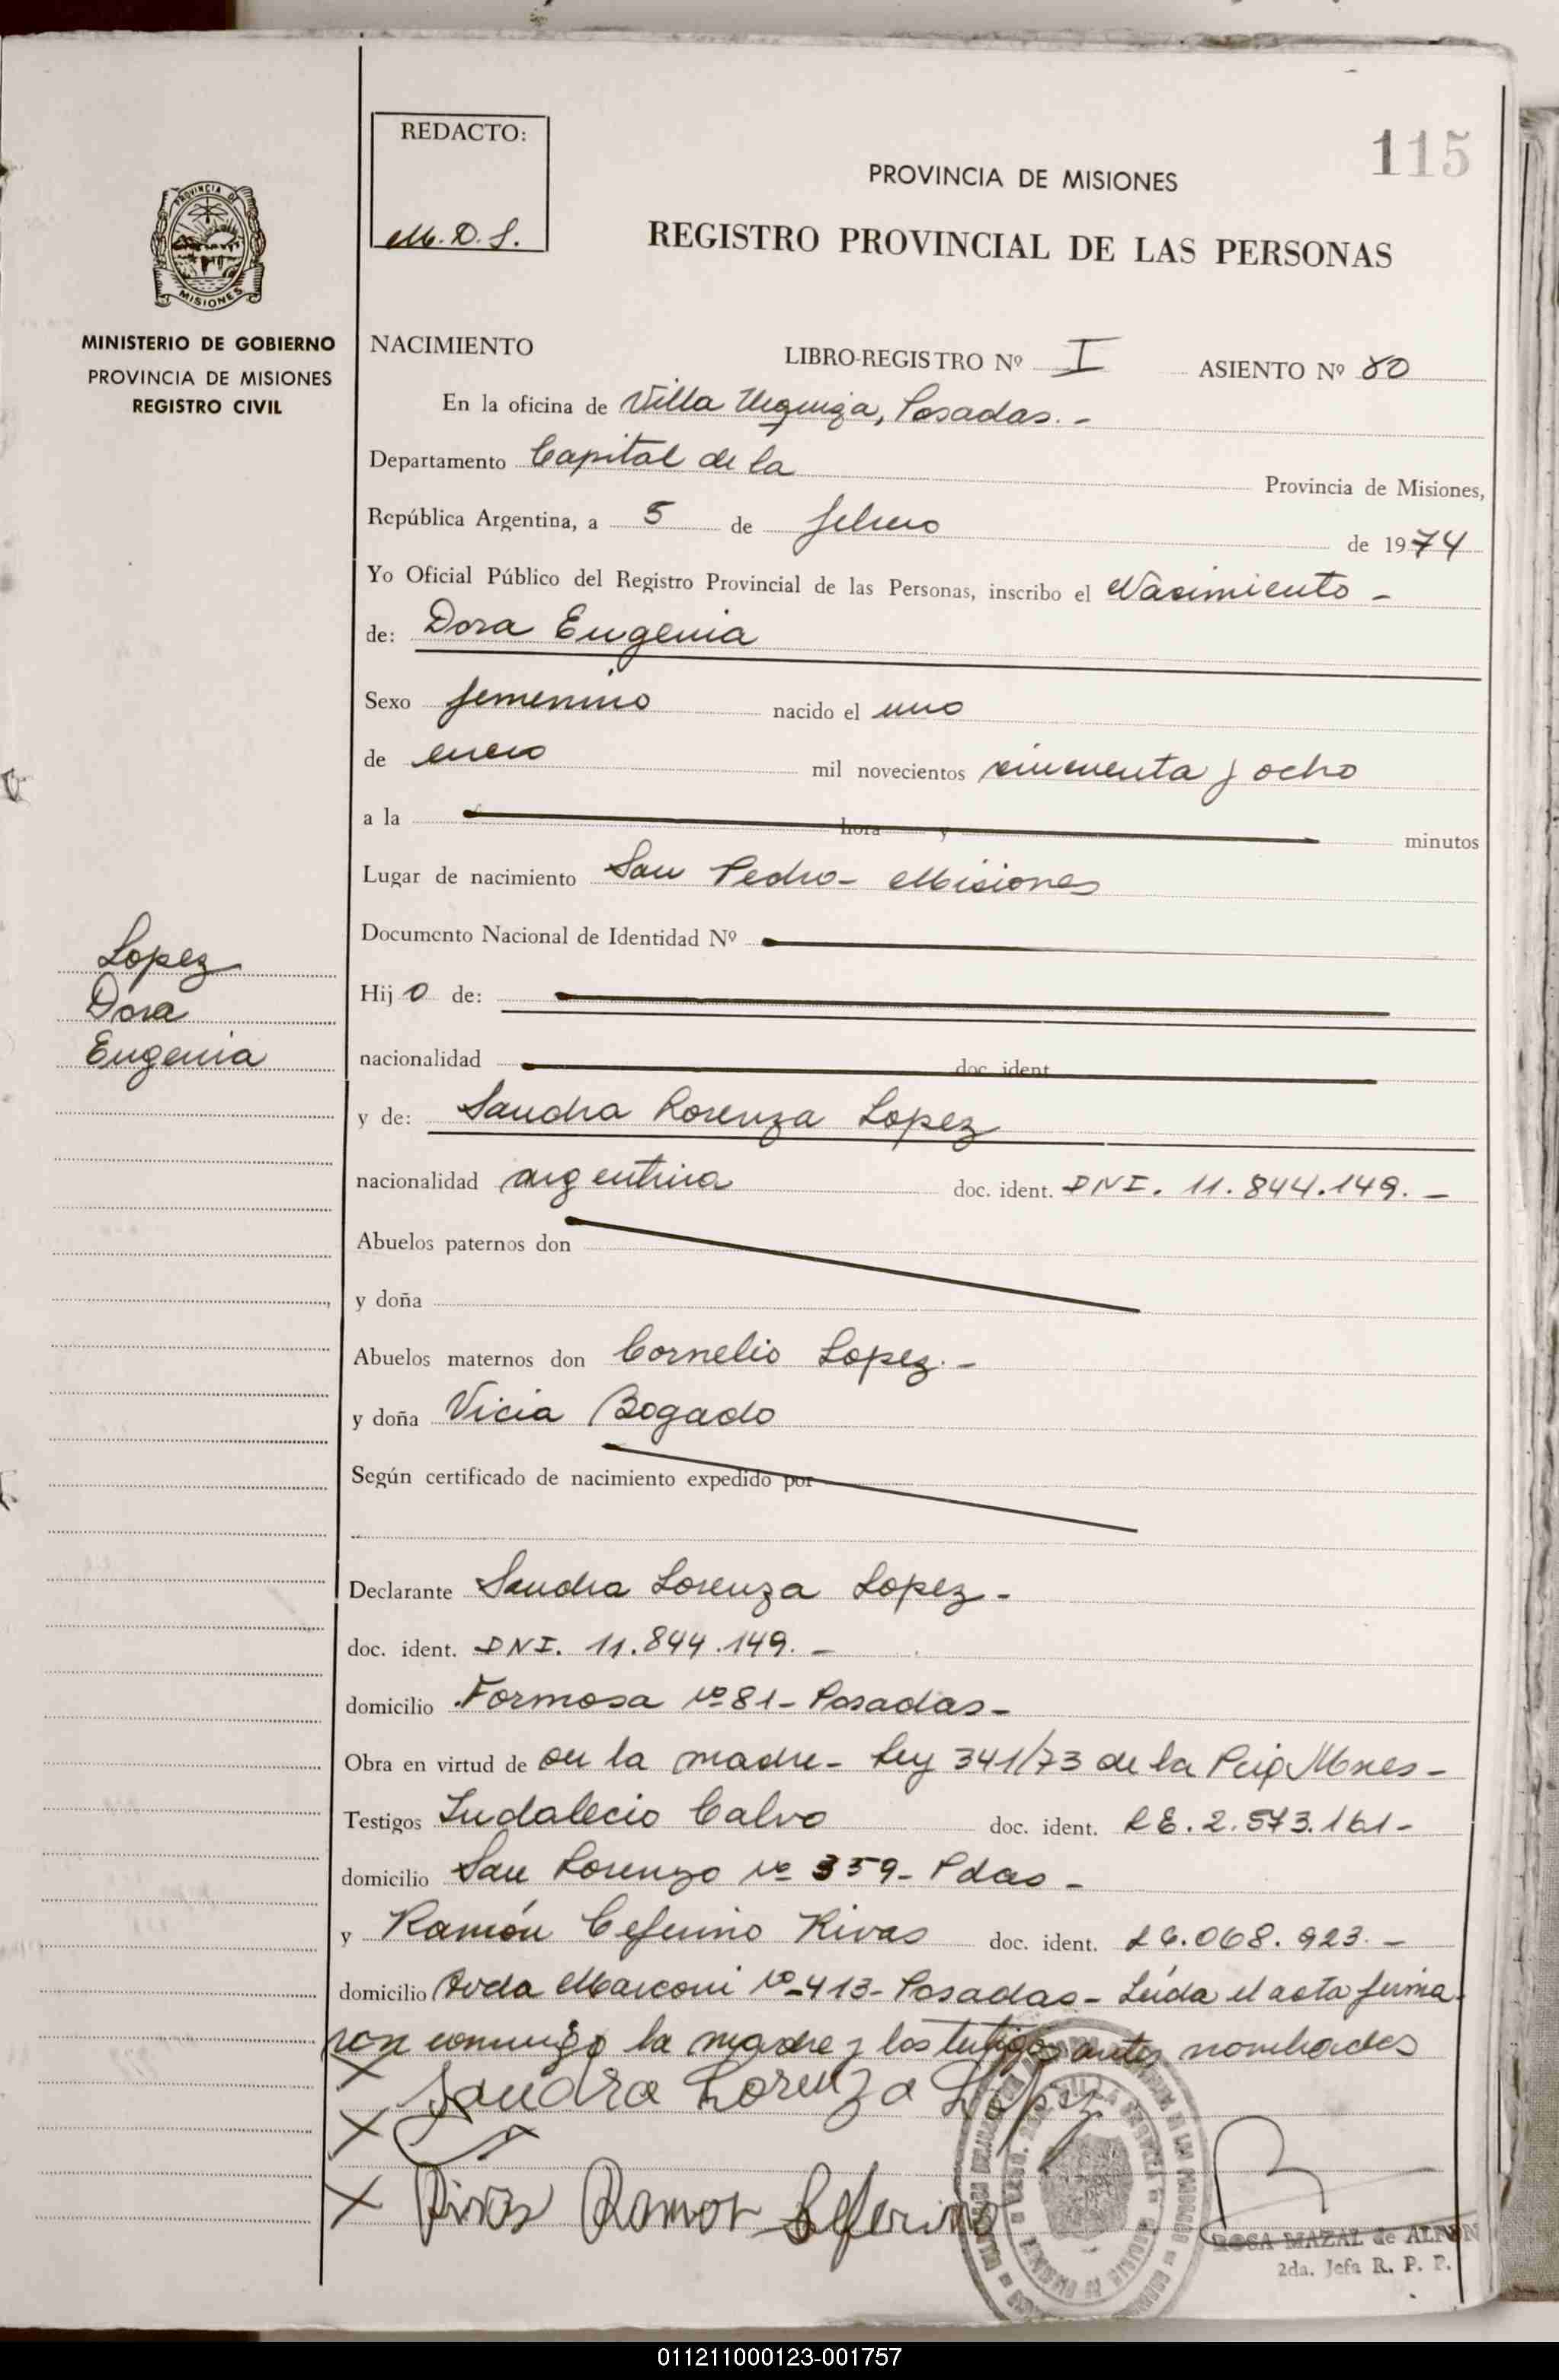 REDACTO:
M.D.S.
115
PROVINCIA DE MISIONES
REGISTRO PROVINCIAL DE LAS PERSONAS
PROVINCIA DE
MISIONES
MINISTERIO DE GOBIERNO
PROVINCIA DE MISIONES
REGISTRO CIVIL
NACIMIENTO LIBRO-REGISTRO Nº I ASIENTO Nº 80
En la oficina de Villa Urquiza, Posadas.-
Departamento Capital de la Provincia de Misiones,
República Argentina, a 5 de febrero de 1974
Yo Oficial Público del Registro Provincial de las Personas, inscribo el Nacimiento -
de: Dora Eugenia
Sexo femenino nacido el uno
de enero mil novecientos cincuenta y ocho
a la hora y minutos
Lugar de nacimiento San Pedro - Misiones
Documento Nacional de Identidad Nº
Lopez
Dora
Eugenia
Hijo de:
nacionalidad doc. ident.
y de: Sandra Lorenza Lopez
nacionalidad argentina doc. ident. DNI. 11.844.149. -
Abuelos paternos don
y doña
Abuelos maternos don Cornelio Lopez. -
y doña Vicia Bogado
Según certificado de nacimiento expedido por
Declarante Sandra Lorenza Lopez -
doc. ident. DNI. 11.844.149. -
domicilio Formosa Nº 81 - Posadas -
Obra en virtud de la madre - Ley 341/73 de la -
Testigos Indalecio Calvo doc. ident. LE. 2.573.161 -
domicilio San Lorenzo Nº 359 - Pdas -
y Ramón Ceferino Rivas doc. ident. 068.923. -
domicilio Avda Marconi Nº 413 - Posadas - Leída el acta firma
ron conmigo la madre y los testigos antes nombrados
X Sandra Lorenza López
X
X Rivas Ramon Ceferino
ROSA MAZAL de
2da. Jefa R. P. P.
011211000123-001757